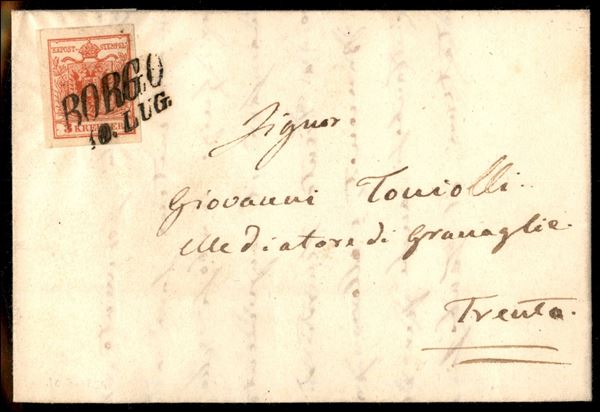 KKPOST-STEMPEL
3 KREUZER
BORGO
10. LUG.
Signor
Giovanni Toniolli
Mediatore di Granaglie.
Trento.